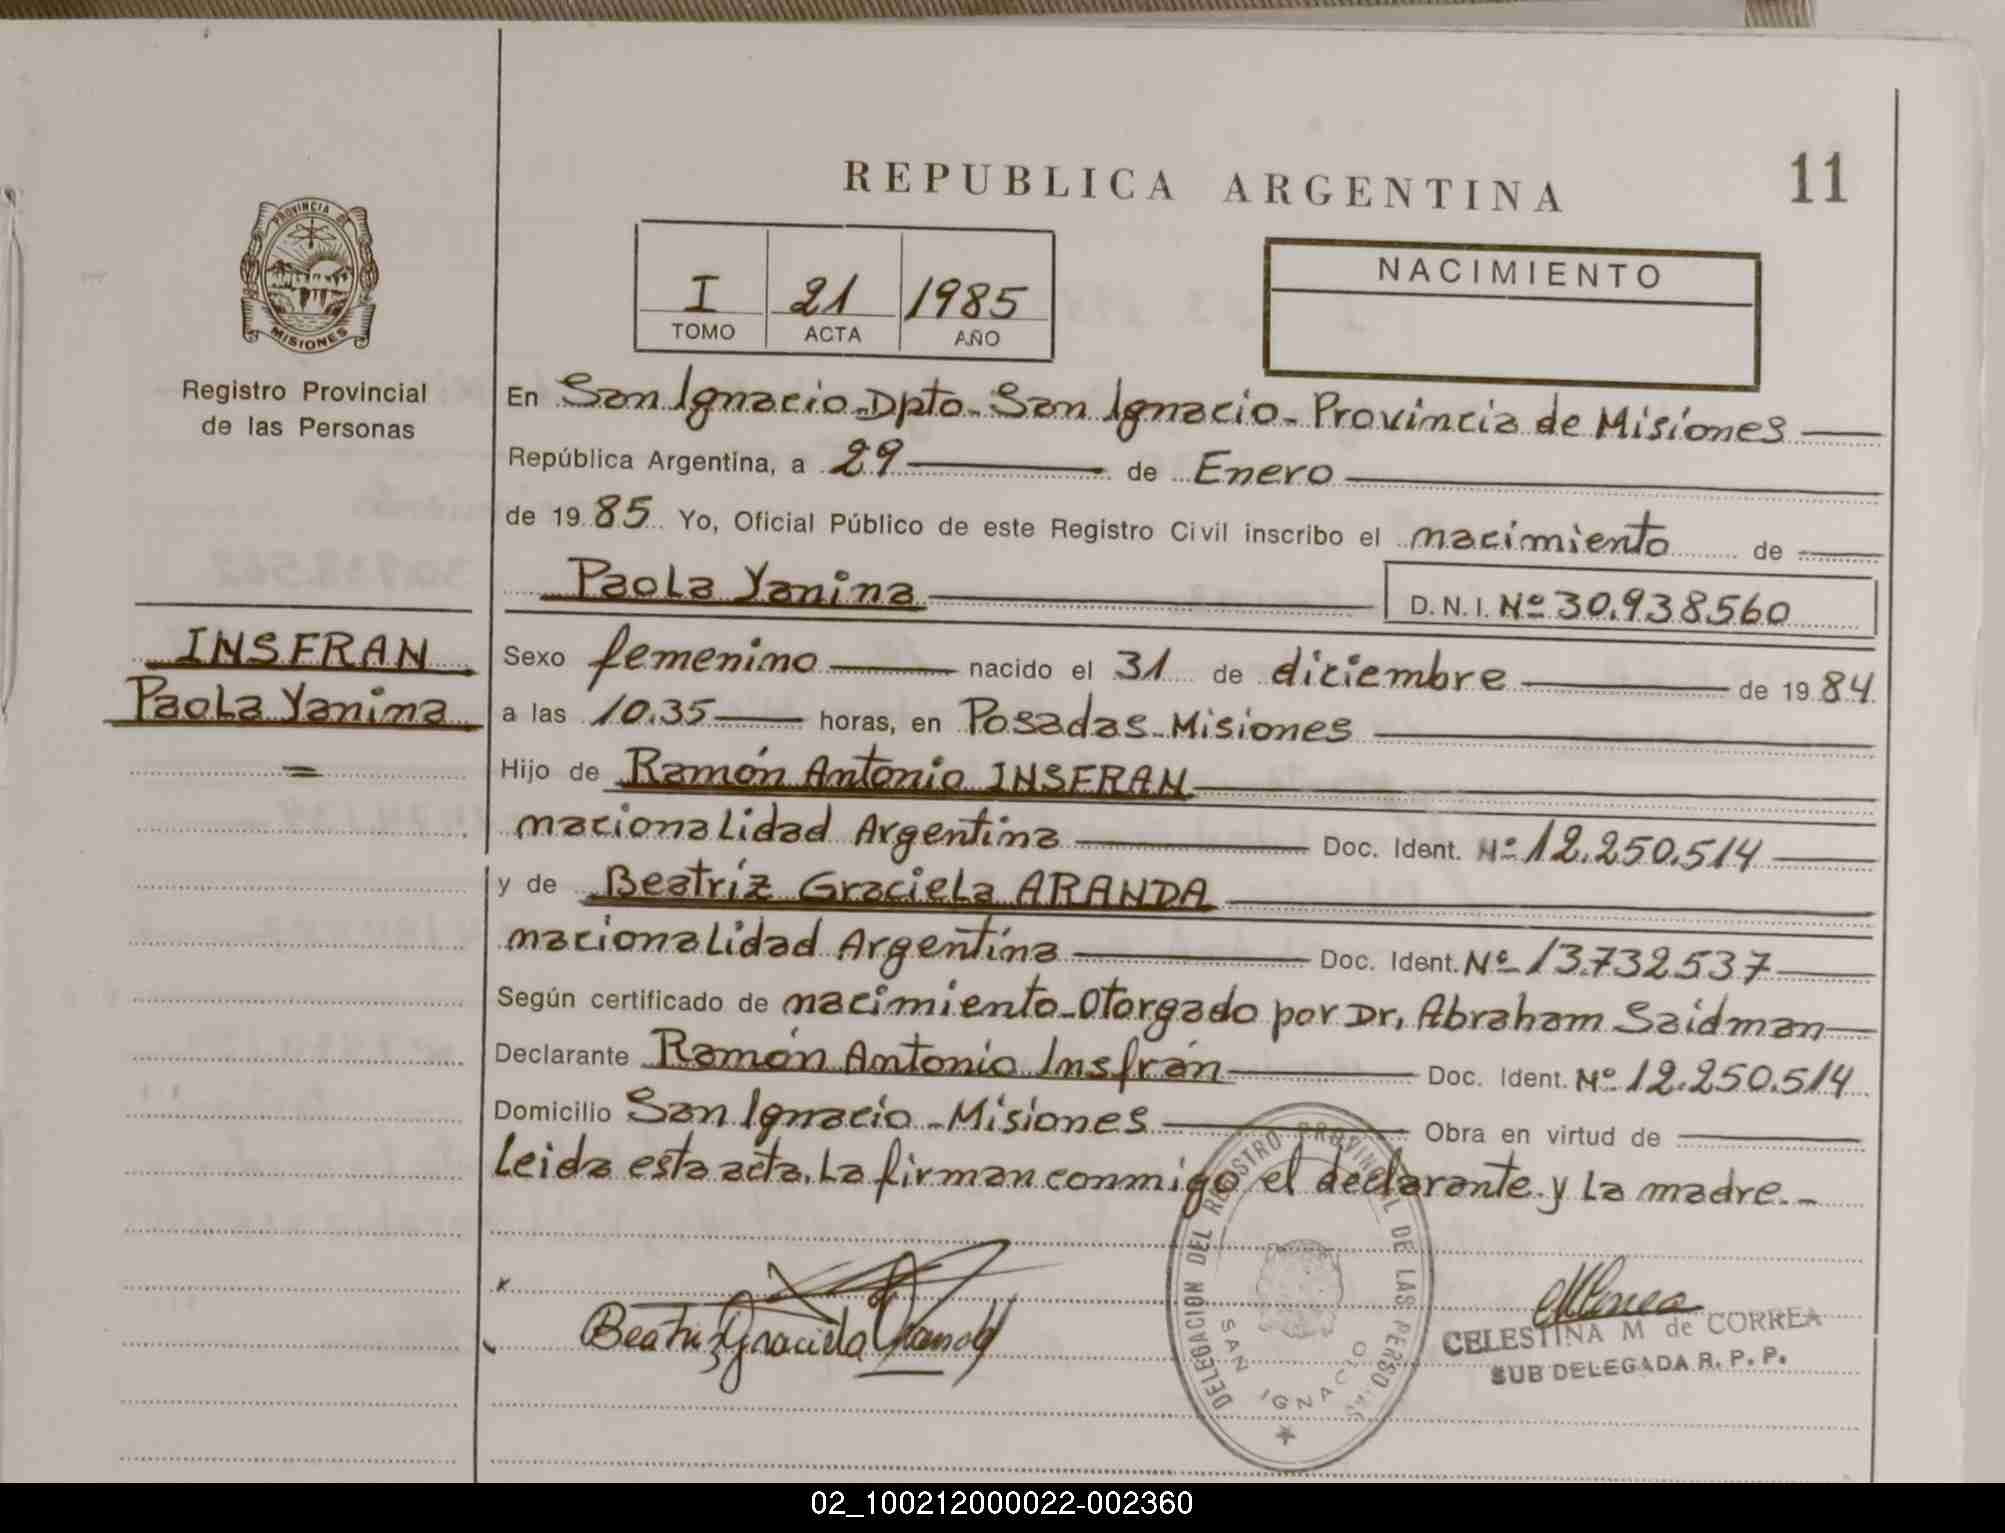 REPUBLICA ARGENTINA
11
PROVINCIA DE
MISIONES
Registro Provincial
de las Personas
I 21 1985
TOMO ACTA AÑO
NACIMIENTO
En San Ignacio-Dpto-San Ignacio-Provincia de Misiones
República Argentina, a 29 de Enero
de 1985 Yo, Oficial Público de este Registro Civil inscribo el nacimiento de
Paola Yanina D.N.I. Nº 30.938560
INSFRAN
Paola Yanina
Sexo femenino nacido el 31 de diciembre de 1984
a las 10.35 horas, en Posadas-Misiones
Hijo de Ramón Antonio INSFRAN
nacionalidad Argentina Doc. Ident. Nº 12.250.514
y de Beatríz Graciela ARANDA
nacionalidad Argentina Doc. Ident. Nº 13.732537
Según certificado de nacimiento-Otorgado por Dr, Abraham Saidman
Declarante Ramón Antonio Insfrán Doc. Ident. Nº 12.250.514
Domicilio San Ignacio-Misiones Obra en virtud de
Leida esta acta, La firman conmigo el declarante y La madre.-
Beatriz Graciela Aranda
DELEGACION DEL REGISTRO PROVINCIAL DE LAS PERSO
SAN IGNACIO
CELESTINA M de CORREA
SUB DELEGADA R. P. P.
02_100212000022-002360